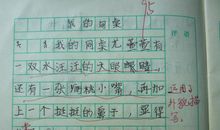 95
我的同桌
我的同桌尤蕾蕾有
一双水汪汪的大眼睛,
还有一张樱桃小嘴,再加
上一个挺挺的鼻子,显得
运用了
外貌描
写